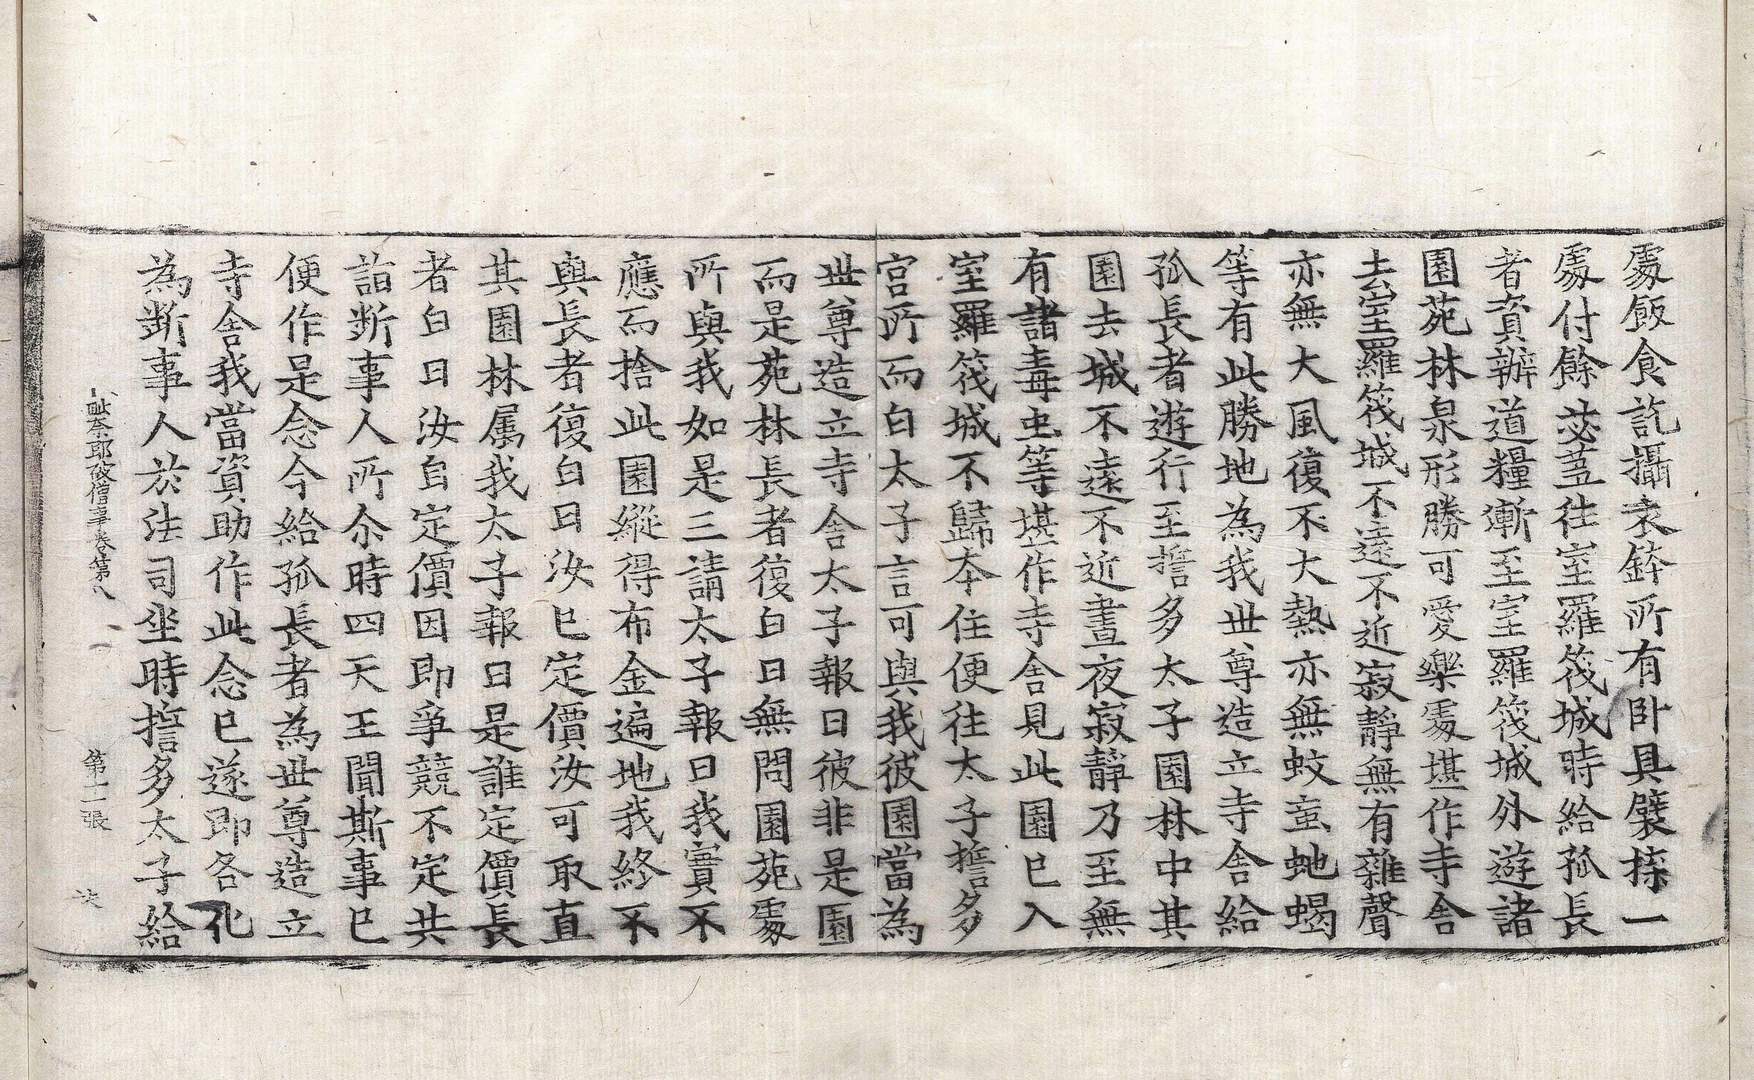 處飯食訖攝衣鉢所有卧具襞揲一
處付餘苾蒭往室羅筏城時給孤長
者資辦道糧漸至室羅筏城外遊諸
園苑林泉形勝可愛樂處堪作寺舍
去室羅筏城不遠不近寂靜無有雜聲
亦無大風復不大熱亦無蚊䖟虵蝎
等有此勝地為我世尊造立寺舍給
孤長者遊行至誓多太子園林中其
園去城不遠不近晝夜寂靜乃至無
有諸毒虫等堪作寺舍見此園已入
室羅筏城不歸本住便往太子誓多
宫所而白太子言可與我彼園當為
世尊造立寺舍太子報曰彼非是園
而是苑林長者復白曰無問園苑處
所與我如是三請太子報曰我實不
應而捨此園縱得布金遍地我終不
與長者復白曰汝已定價汝可取直
其園林属我太子報曰是誰定價長
者白曰汝自定價因即爭競不定共
詣斷事人所尒時四天王聞斯事已
便作是念今給孤長者為世尊造立
寺舍我當資助作此念已遂即各化
為斷事人於法司坐時誓多太子給
奈耶破僧事卷第八 第二張